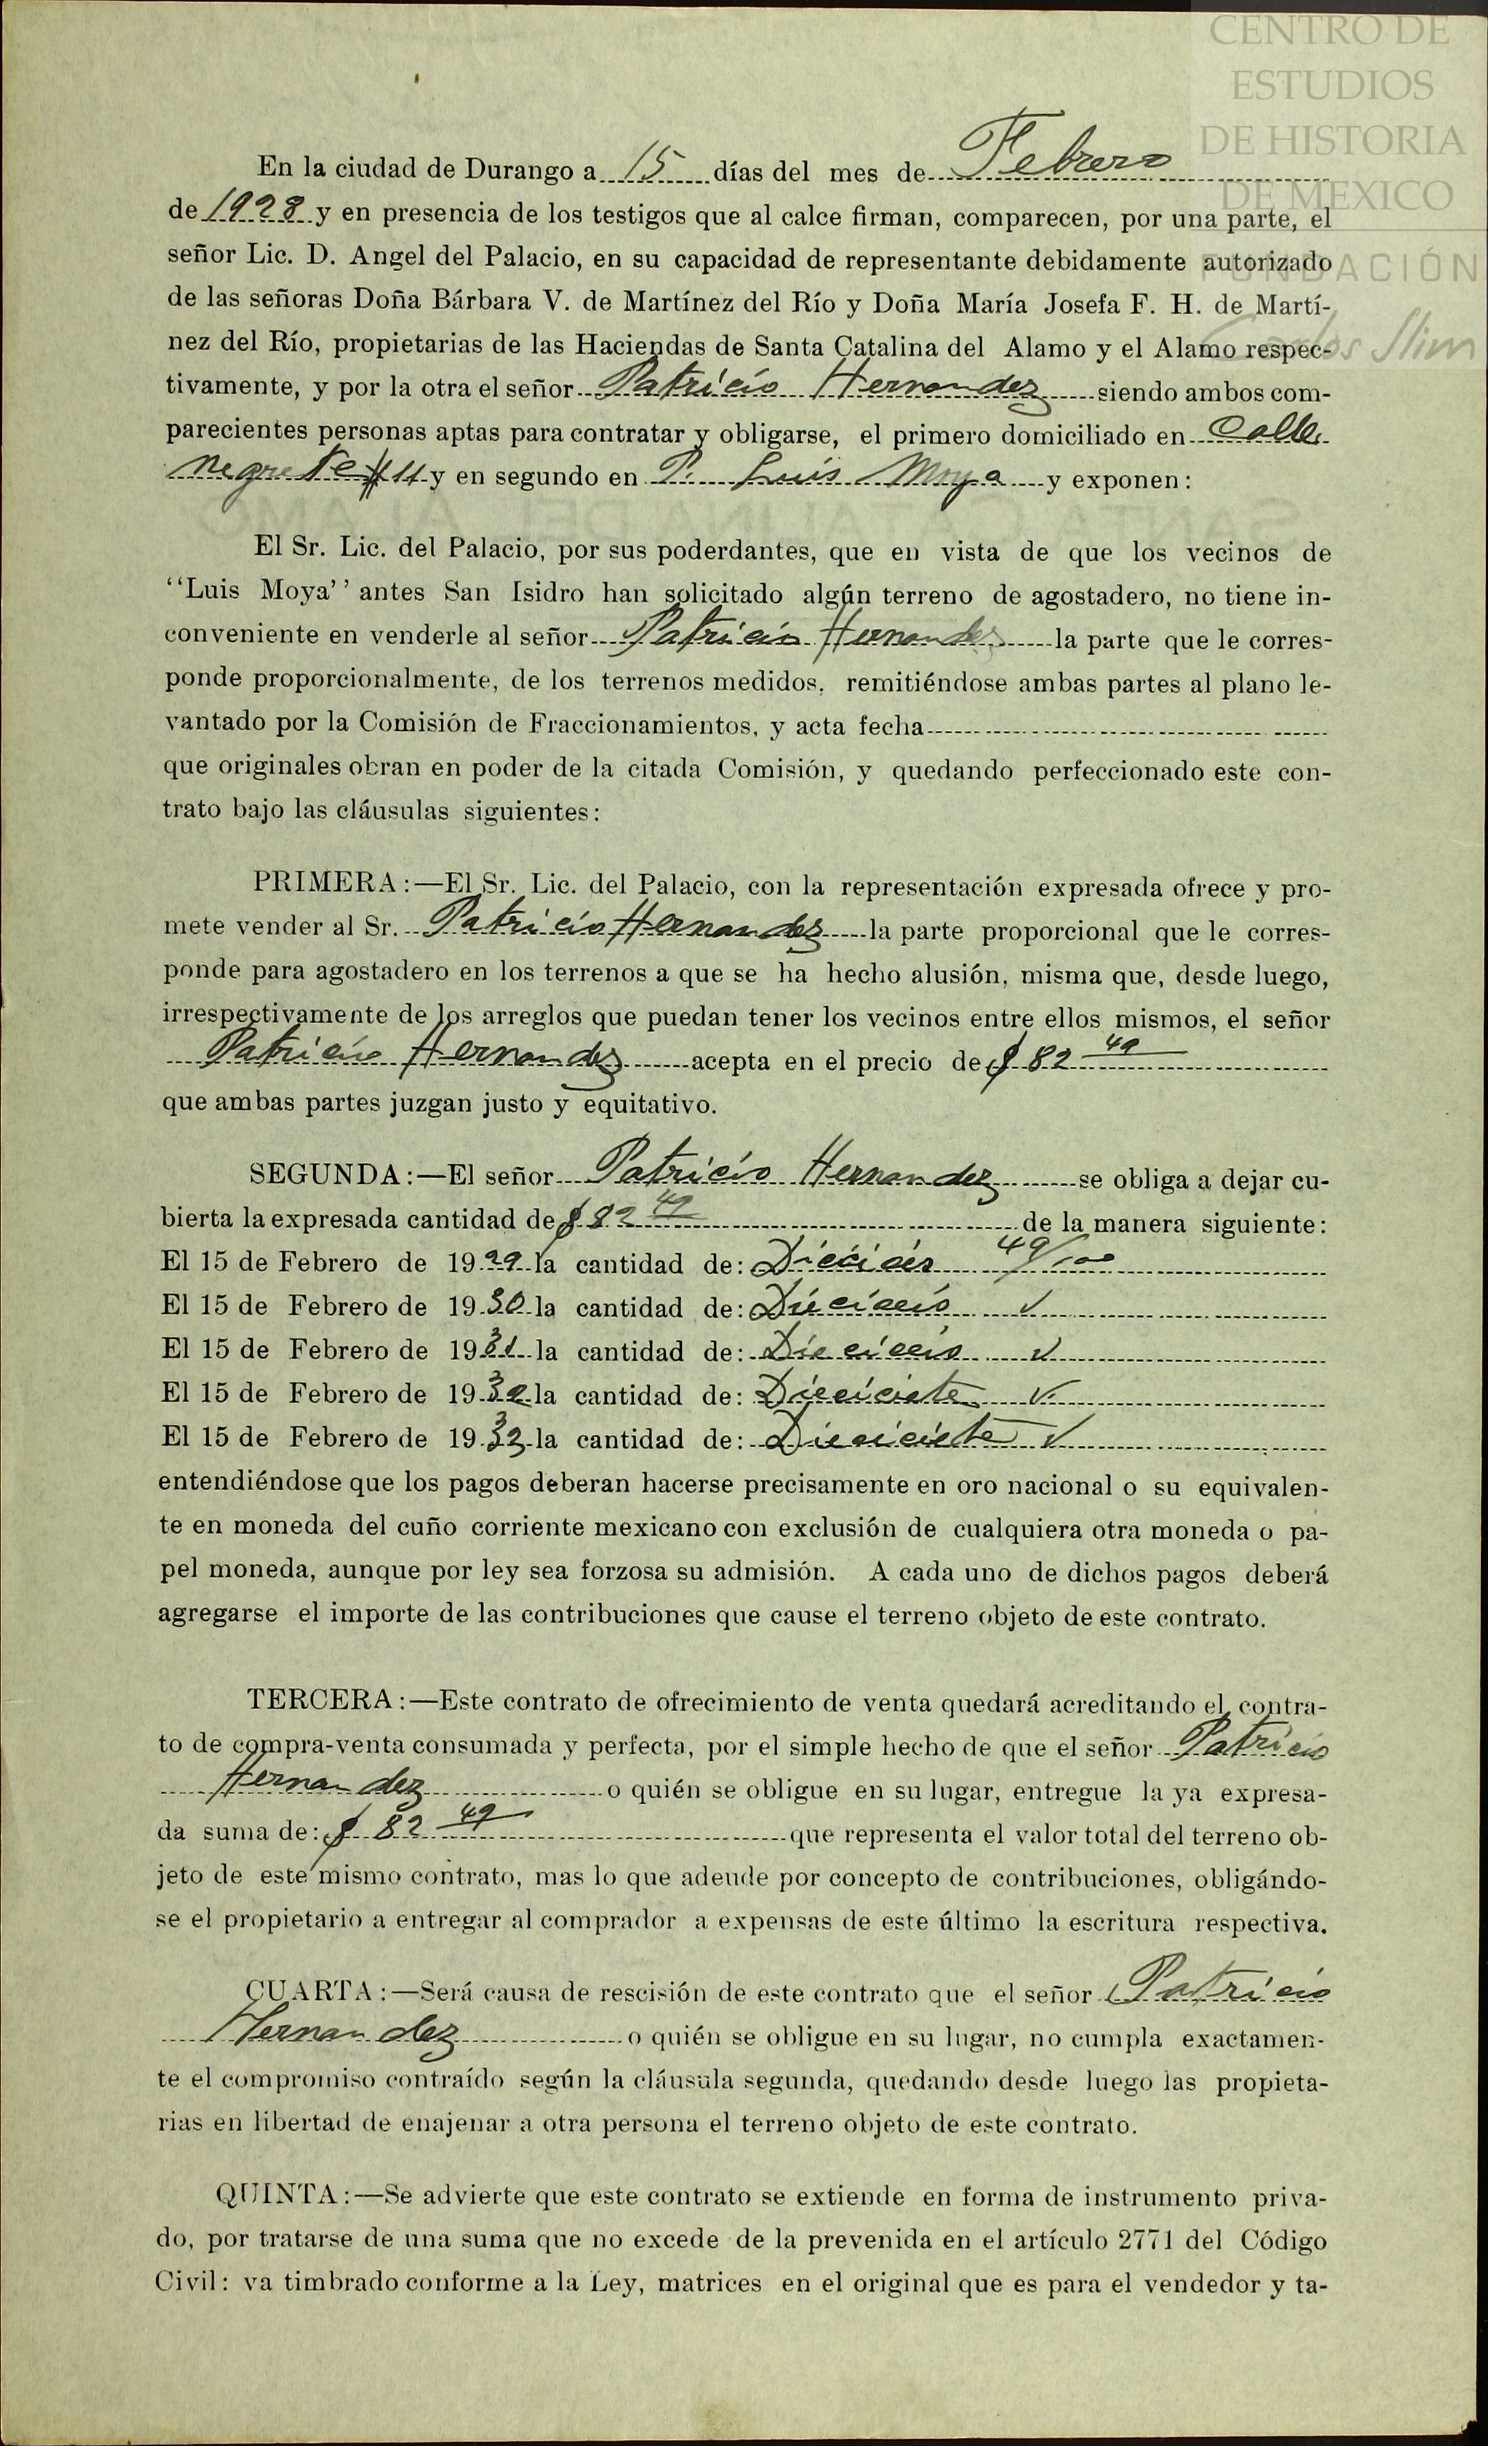 CENTRO DE
ESTUDIOS
DE HISTORIA
DE MEXICO
FUNDACIÓN
Carlos Slim
En la ciudad de Durango a 15 días del mes de Febrero
de 1928 y en presencia de los testigos que al calce firman, comparecen, por una parte, el
señor Lic. D. Angel del Palacio, en su capacidad de representante debidamente autorizado
de las señoras Doña Bárbara V. de Martínez del Río y Doña María Josefa F. H. de Martí-
nez del Río, propietarias de las Haciendas de Santa Catalina del Alamo y el Alamo respec-
tivamente, y por la otra el señor Patricio Hernandez siendo ambos com-
parecientes personas aptas para contratar y obligarse, el primero domiciliado en Calle
negrete #11 y en segundo en P. Luis Moya y exponen:
El Sr. Lic. del Palacio, por sus poderdantes, que en vista de que los vecinos de
"Luis Moya" antes San Isidro han solicitado algún terreno de agostadero, no tiene in-
conveniente en venderle al señor Patricio Hernandez la parte que le corres-
ponde proporcionalmente, de los terrenos medidos, remitiéndose ambas partes al plano le-
vantado por la Comisión de Fraccionamientos, y acta fecha
que originales obran en poder de la citada Comisión, y quedando perfeccionado este con-
trato bajo las cláusulas siguientes:
PRIMERA:—El Sr. Lic. del Palacio, con la representación expresada ofrece y pro-
mete vender al Sr. Patricio Hernandez la parte proporcional que le corres-
ponde para agostadero en los terrenos a que se ha hecho alusión, misma que, desde luego,
irrespectivamente de los arreglos que puedan tener los vecinos entre ellos mismos, el señor
Patricio Hernandez acepta en el precio de $ 82 49
que ambas partes juzgan justo y equitativo.
SEGUNDA:—El señor Patricio Hernandez se obliga a dejar cu-
bierta la expresada cantidad de $ 82 49 de la manera siguiente:
El 15 de Febrero de 1929 la cantidad de: Dieciceis 49/100
El 15 de Febrero de 1930 la cantidad de: Dieciceis ✓
El 15 de Febrero de 1931 la cantidad de: Dieciceis ✓
El 15 de Febrero de 1932 la cantidad de: Dieciciete ✓
El 15 de Febrero de 1933 la cantidad de: Dieciciete ✓
entendiéndose que los pagos deberan hacerse precisamente en oro nacional o su equivalen-
te en moneda del cuño corriente mexicano con exclusión de cualquiera otra moneda o pa-
pel moneda, aunque por ley sea forzosa su admisión. A cada uno de dichos pagos deberá
agregarse el importe de las contribuciones que cause el terreno objeto de este contrato.
TERCERA:—Este contrato de ofrecimiento de venta quedará acreditando el contra-
to de compra-venta consumada y perfecta, por el simple hecho de que el señor Patricio
Hernandez o quién se obligue en su lugar, entregue la ya expresa-
da suma de: $ 82 49 que representa el valor total del terreno ob-
jeto de este mismo contrato, mas lo que adeude por concepto de contribuciones, obligándo-
se el propietario a entregar al comprador a expensas de este último la escritura respectiva.
CUARTA:—Será causa de rescisión de este contrato que el señor Patricio
Hernandez o quién se obligue en su lugar, no cumpla exactamen-
te el compromiso contraído según la cláusula segunda, quedando desde luego las propieta-
rias en libertad de enajenar a otra persona el terreno objeto de este contrato.
QUINTA:—Se advierte que este contrato se extiende en forma de instrumento priva-
do, por tratarse de una suma que no excede de la prevenida en el artículo 2771 del Código
Civil: va timbrado conforme a la Ley, matrices en el original que es para el vendedor y ta-